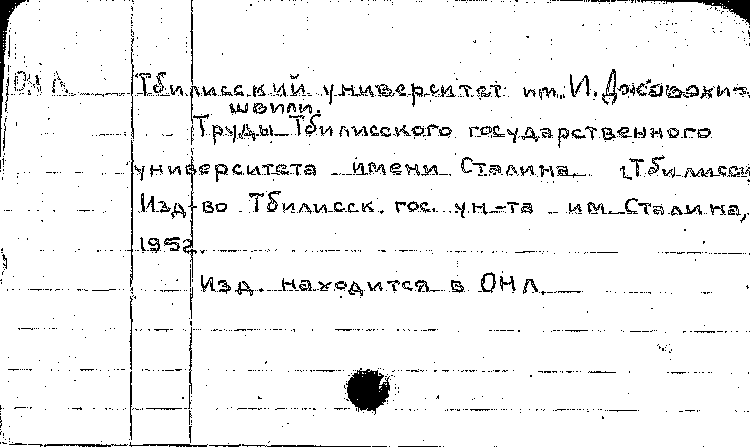 ОНЛ
Тбилисский университет им. И. Джавахи-
швили.
Труды Тбилисского государственного
университета имени Сталина. [Тбилиси]
Изд-во Тбилисск. гос. ун-та им. Сталина,
1952.
Изд. находится в ОНЛ.